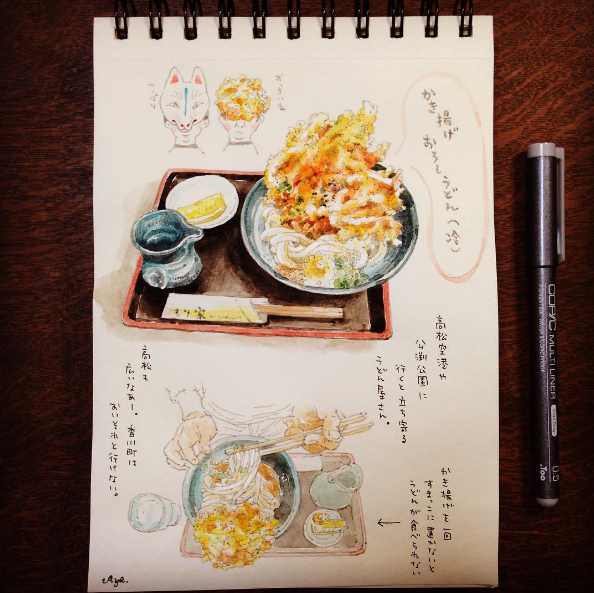 かき揚げ
おろしうどん(冷)
高松空港や
公渕公園に
行くと立ち寄る
うどん屋さん。
高松も
広いなぁー。香川町は
おいそれと行けない。
かき揚げを一回
すまっこに置かないと
うどんが食べられない
Aya.
COPIC MULTILINER
.Too
0.5